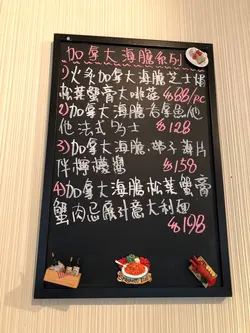 加拿大海膽系列
1)火炙加拿大海膽芝士焗
松葉蟹膏大啡菇 $68/pc
2)加拿大海膽 他
他法式多士 $128
3)加拿大海膽.帶子薄片
伴檸檬醬 $158
4)加拿大海膽松葉蟹膏
蟹肉忌廉汁意大利麵
$198